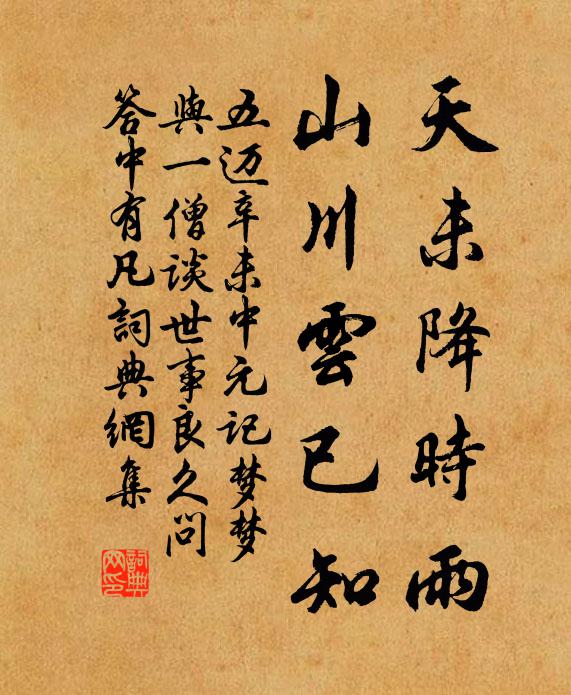 天未降時雨
山川雲已知
五迈辛未中元记梦梦
與一僧談世事良久问
答中有凡詞典網集
詞典網印